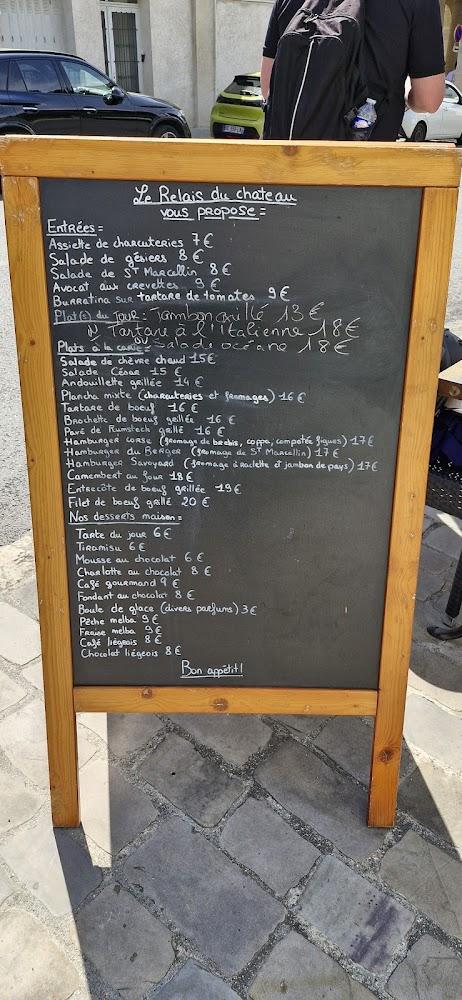 Le Relais du chateau
vous propose =
Entrées =
Assiette de charcuteries 7 €
Salade de gésiers 8 €
Salade de ST Marcellin 8 €
Avocat aux crevettes 9 €
Burratina sur tartare de tomates 9 €
Plat(s) du jour = Jambon grillé 13 €
Tartare à l'italienne 18 €
Plats à la carte = Salade océane 18 €
Salade de chèvre chaud 15 €
Salade César 15 €
Andouillette grillée 14 €
Plancha mixte (charcuteries et fromages) 16 €
Tartare de boeuf 16 €
Brochette de boeuf grillée 16 €
Pavé de Rumsteck grillé 16 €
Hamburger corse (fromage de brebis, coppa, compotée figues) 17 €
Hamburger du Berger (fromage de ST Marcellin) 17 €
Hamburger Savoyard (fromage à raclette et jambon de pays) 17 €
Camembert au four 18 €
Entrecôte de boeuf grillée 19 €
Filet de boeuf grillé 20 €
Nos desserts maison =
Tarte du jour 6 €
Tiramisu 6 €
Mousse au chocolat 6 €
Charlotte au chocolat 8 €
Café gourmand 9 €
Fondant au chocolat 8 €
Boule de glace (divers parfums) 3 €
Pêche melba 9 €
Fraise melba 9 €
Café liégeois 8 €
Chocolat liégeois 8 €
Bon appétit !